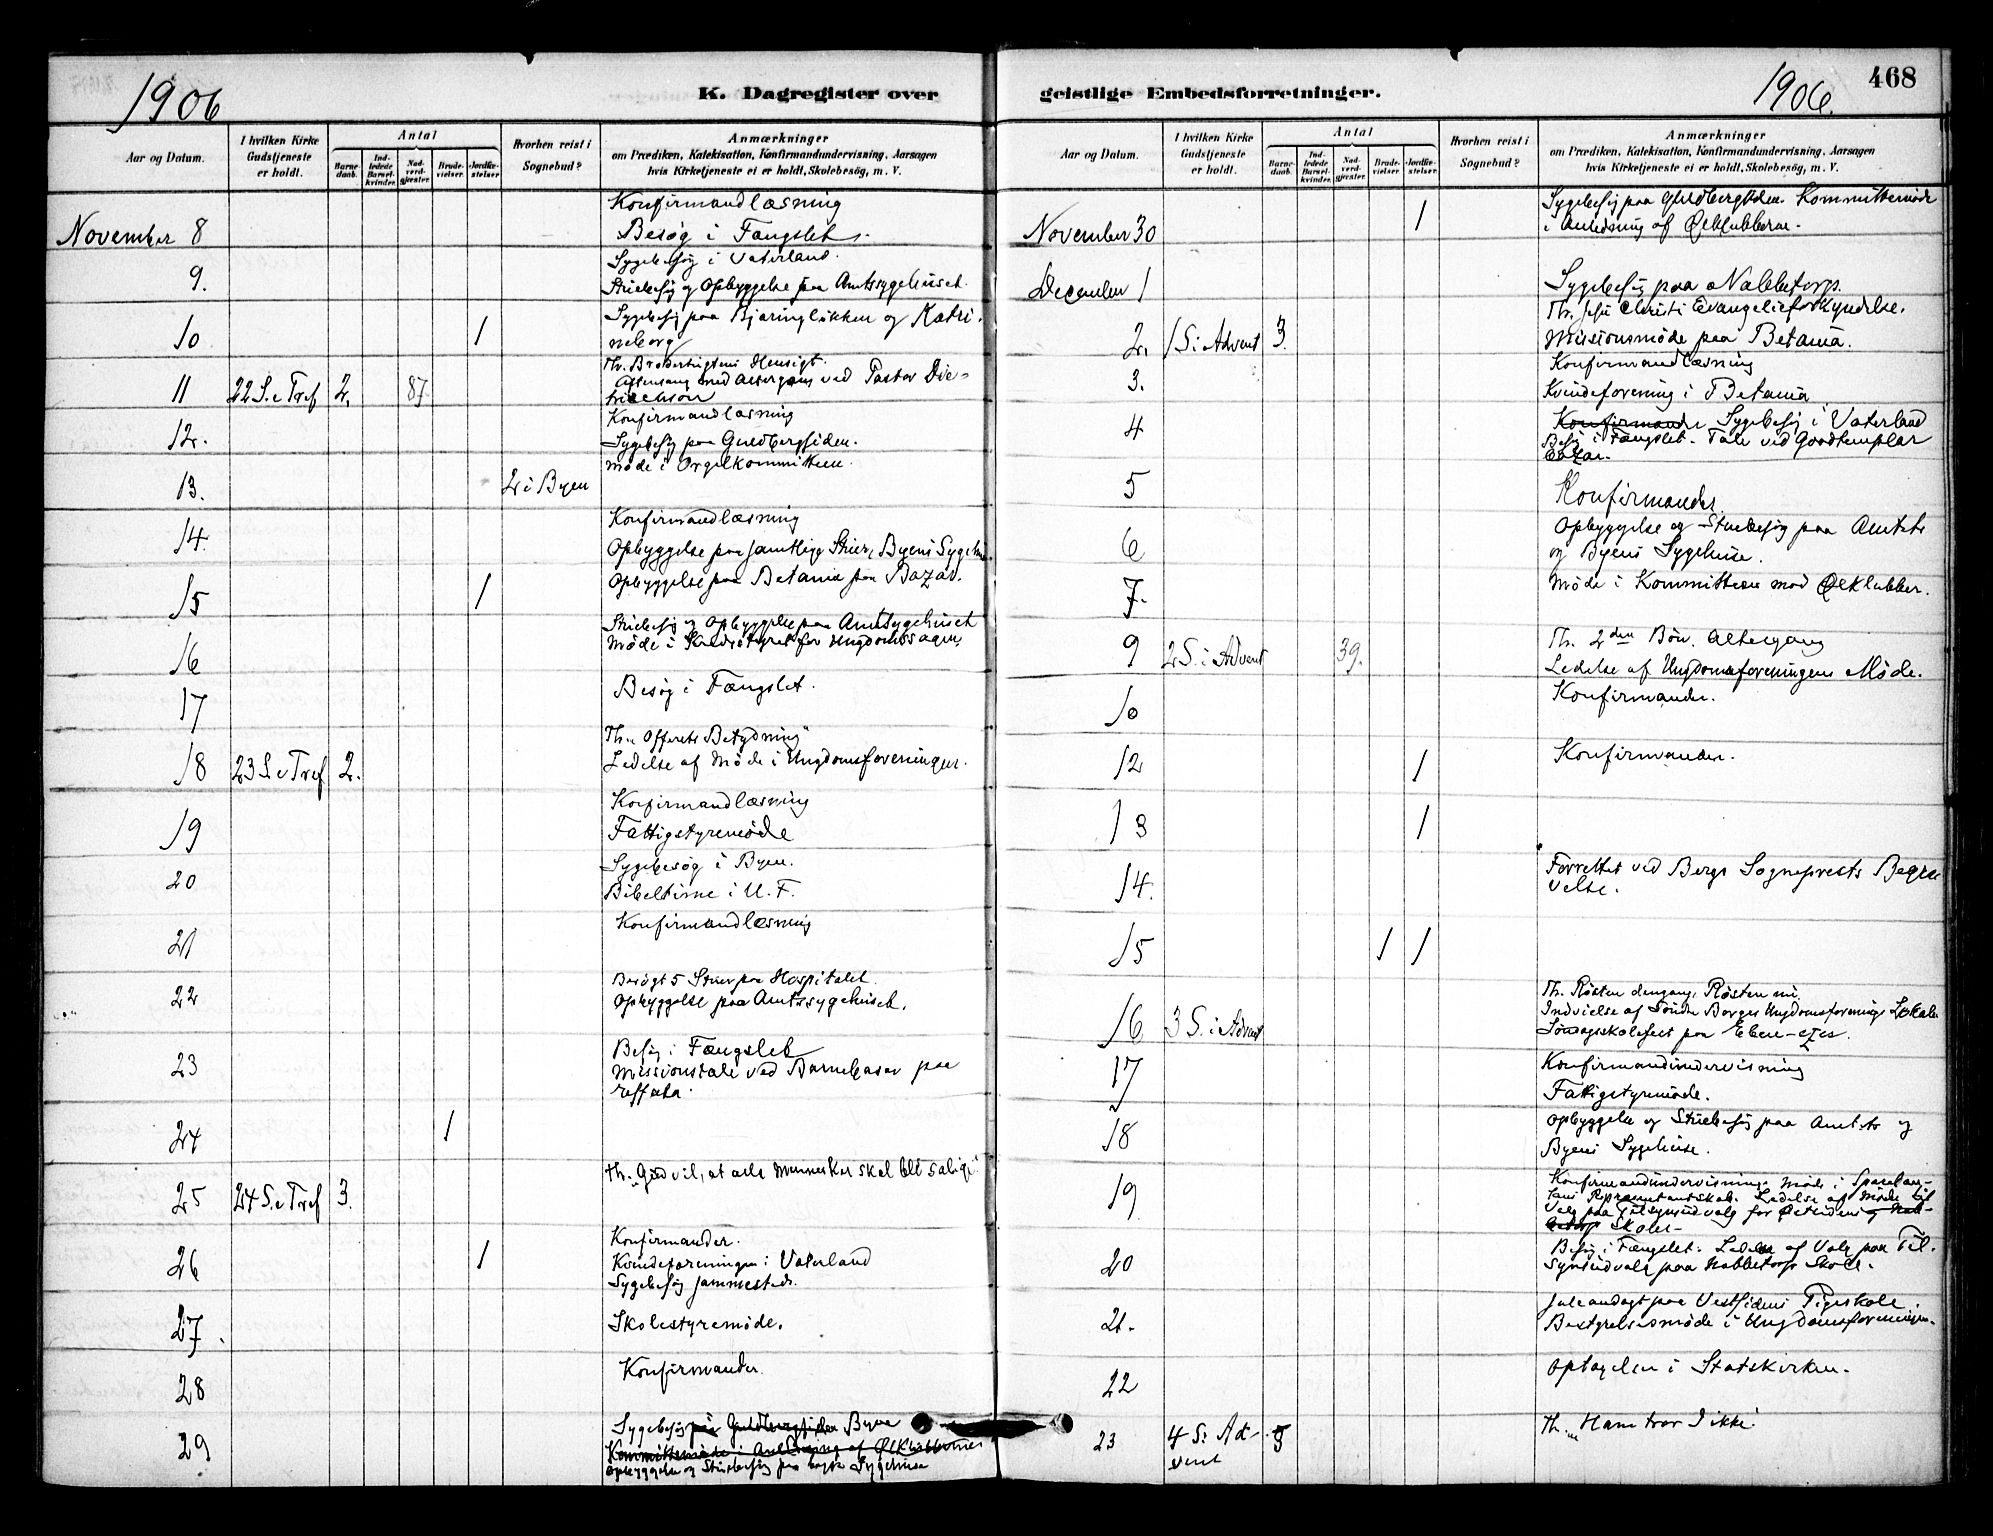 1906
K. Dagregister over
Aar og Datum.
I hvilken Kirke Gudstjeneste er holdt.
Antal
Barnedaab.
Indledede Barselkvinder.
Nadverdgjester.
Brudevielser.
Jordfæstelser.
Hvorhen reist i Sognebud?
Anmærkninger
om Prædiken, Katekisation, Konfirmandundervisning, Aarsagen
hvis Kirketjeneste ei er holdt, Skolebesøg, m. V.
Konfirmandlæsning
November 8
Besøg i Fængslet.
Sygebesøg i Vaterland.
9.
Stuebesøg og Opbyggelse paa Amtssygehuset.
Sygebesøg paa Bjaringløkken og Katri-
10 1 neborg
11 22 S. e Tref 2. 87.
Altergang ved Pastor Die-
Konfirmandlæsning
12.
Sygebesøg paa Guldbergsiden.
Møde i Orgelkommitteen.
13. 2 i Byen
Konfirmandlæsning
14.
Opbyggelse paa samtlige Stuer, Byens Sygehus
Opbyggelse paa Betania paa Bazar.
15 1
Stuebesøg og Opbyggelse paa Amtsygehuset
Møde i for Ungdomssagen,
16
Besøg i Fængslet.
17
Th. "Offerets Betydning"
18 23 S. e Tref 2.
Ledelse af Møde i Ungdomsforeningen.
Konfirmandlæsning
19
Fattigstyremøde
Sygebesøg i Byen.
20
Bibeltime i U. F.
Konfirmandlæsning
21
Besøgt 5 Stuer paa Hospitalet.
22
Opbyggelse paa Amtssygehuset.
Besøg i Fængslet
23
Missionstale ved Barnebasar paa
24 1
Th. "Gud vil, at alle Mennesker skal blive salige"
25 24 S. e Tref 3.
Konfirmander.
26 1
Kvindeforeningen i Vaterland
Sygebesøg sammesteds.
27.
Skolestyremøde.
Konfirmander.
28
Sygebesøg paa Guldbergsiden Byen
29
Kommittemøde i Anledning af Ølklubberne
Opbyggelse og Stuebesøg paa Sygehuse
geistlige Embedsforretninger.
1906.
468
Aar og Datum.
I hvilken Kirke Gudstjeneste er holdt.
Antal
Barnedaab.
Indledede Barselkvinder.
Nadverdgjester.
Brudevielser.
Jordfæstelser.
Hvorhen reist i Sognebud?
Anmærkninger
om Prædiken, Katekisation, Konfirmandundervisning, Aarsagen
hvis Kirketjeneste ei er holdt, Skolebesøg, m. V.
Sygebesøg paa Guldbergsiden. Kommittemøde
November 30 1
i Anledning af Ølklubberne.
December 1
Sygebesøg paa Nabbetorp.
Th. Jesu Christi Evangelieforkyndelse.
2. 1 S. i Advent 3.
Missionsmøde paa Betania.
Konfirmandlæsning
3.
Kvindeforening i Betania
4
Konfirmander Sygebesøg i Vaterland
Besøg i Fængslet. Tale ved Goodtemplar
Bazar.
5
Konfirmander.
Opbyggelse og Stuebesøg paa Amtets
6
og Byens Sygehuse.
7.
Møde i Kommitteen mod Ølklubber.
Th. 2den Bøn. Altergang
9 2 S. i Advent 39.
Ledelse af Ungdomsforeningens Møde.
Konfirmander.
10
12 1
Konfirmander.
13 1
14.
Forrettet ved Bergs Sogneprests Begra-
velse.
15 1 1
Th. Røsten dengang, Røsten nu.
16 3 S. i Advent
Indvielse af Søndre Borges Ungdomsforenings Lokale
Søndagsskolefest paa Eben-ezer.
17
Konfirmandundervisning
Fattigstyremøde.
18
Opbyggelse og Stuebesøg paa Amtets og
Byens Sygehuse.
19
Konfirmandundervisning. Møde i Spareban-
kens Repræsentantskab. Ledelse af Møde til
Valg paa Tilsynsudvalg for Østsidens og Nab-
betorp Skoler.
20
Besøg i Fængslet. Ledelse af Valg paa Til-
synsudvalg paa Nabbetorp Skole.
Juleandagt paa Vestsidens Pigeskole.
21.
Bestyrelsesmøde i Ungdomsforeningen.
22
Optagelse i Statskirken.
23 4 S. i Ad-
vent
Th. "Ham tror I ikke"